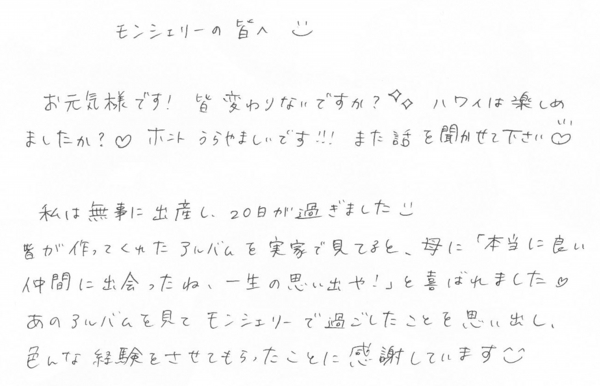 モンシェリーの皆へ
お元気様です! 皆変わりないですか? ハワイは楽しめ
ましたか?♡ ホントうらやましいです!!! また話を聞かせて下さい
私は無事に出産し、20日が過ぎました
皆が作ってくれたアルバムを実家で見てると、母に「本当に良い
仲間に出会ったね、一生の思い出や!」と喜ばれました♡
あのアルバムを見てモンシェリーで過ごしたことを思い出し、
色んな経験をさせてもらったことに感謝しています